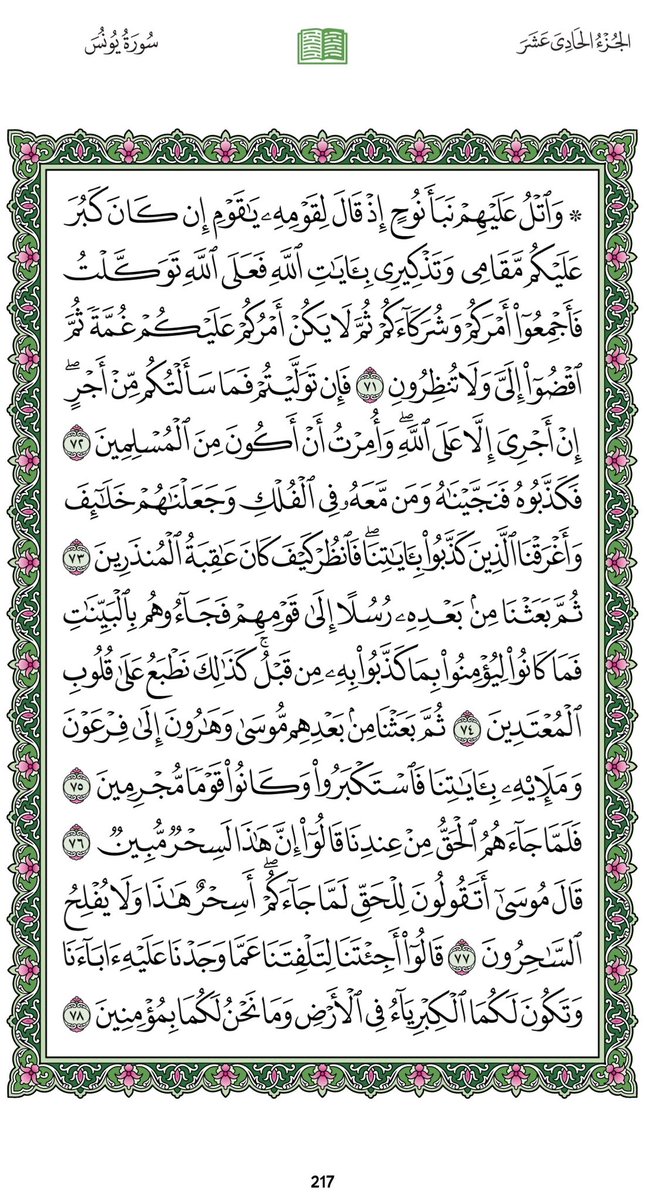 الجُزْءُ الحَادِىَ عَشَرَ
سُورَةُ يُونُسَ
۞ وَٱتْلُ عَلَيْهِمْ نَبَأَ نُوحٍ إِذْ قَالَ لِقَوْمِهِۦ يَٰقَوْمِ إِن كَانَ كَبُرَ
عَلَيْكُم مَّقَامِى وَتَذْكِيرِى بِـَٔايَٰتِ ٱللَّهِ فَعَلَى ٱللَّهِ تَوَكَّلْتُ
فَأَجْمِعُوٓا۟ أَمْرَكُمْ وَشُرَكَآءَكُمْ ثُمَّ لَا يَكُنْ أَمْرُكُمْ عَلَيْكُمْ غُمَّةً ثُمَّ
ٱقْضُوٓا۟ إِلَىَّ وَلَا تُنظِرُونِ ٧١ فَإِن تَوَلَّيْتُمْ فَمَا سَأَلْتُكُم مِّنْ أَجْرٍ ۖ
إِنْ أَجْرِىَ إِلَّا عَلَى ٱللَّهِ ۖ وَأُمِرْتُ أَنْ أَكُونَ مِنَ ٱلْمُسْلِمِينَ ٧٢
فَكَذَّبُوهُ فَنَجَّيْنَٰهُ وَمَن مَّعَهُۥ فِى ٱلْفُلْكِ وَجَعَلْنَٰهُمْ خَلَٰٓئِفَ
وَأَغْرَقْنَا ٱلَّذِينَ كَذَّبُوا۟ بِـَٔايَٰتِنَا ۖ فَٱنظُرْ كَيْفَ كَانَ عَٰقِبَةُ ٱلْمُنذَرِينَ ٧٣
ثُمَّ بَعَثْنَا مِنۢ بَعْدِهِۦ رُسُلًا إِلَىٰ قَوْمِهِمْ فَجَآءُوهُم بِٱلْبَيِّنَٰتِ
فَمَا كَانُوا۟ لِيُؤْمِنُوا۟ بِمَا كَذَّبُوا۟ بِهِۦ مِن قَبْلُ ۚ كَذَٰلِكَ نَطْبَعُ عَلَىٰ قُلُوبِ
ٱلْمُعْتَدِينَ ٧٤ ثُمَّ بَعَثْنَا مِنۢ بَعْدِهِم مُّوسَىٰ وَهَٰرُونَ إِلَىٰ فِرْعَوْنَ
وَمَلَإِي۟هِۦ بِـَٔايَٰتِنَا فَٱسْتَكْبَرُوا۟ وَكَانُوا۟ قَوْمًا مُّجْرِمِينَ ٧٥
فَلَمَّا جَآءَهُمُ ٱلْحَقُّ مِنْ عِندِنَا قَالُوٓا۟ إِنَّ هَٰذَا لَسِحْرٌ مُّبِينٌ ٧٦
قَالَ مُوسَىٰٓ أَتَقُولُونَ لِلْحَقِّ لَمَّا جَآءَكُمْ ۖ أَسِحْرٌ هَٰذَا وَلَا يُفْلِحُ
ٱلسَّٰحِرُونَ ٧٧ قَالُوٓا۟ أَجِئْتَنَا لِتَلْفِتَنَا عَمَّا وَجَدْنَا عَلَيْهِ ءَابَآءَنَا
وَتَكُونَ لَكُمَا ٱلْكِبْرِيَآءُ فِى ٱلْأَرْضِ وَمَا نَحْنُ لَكُمَا بِمُؤْمِنِينَ ٧٨
217